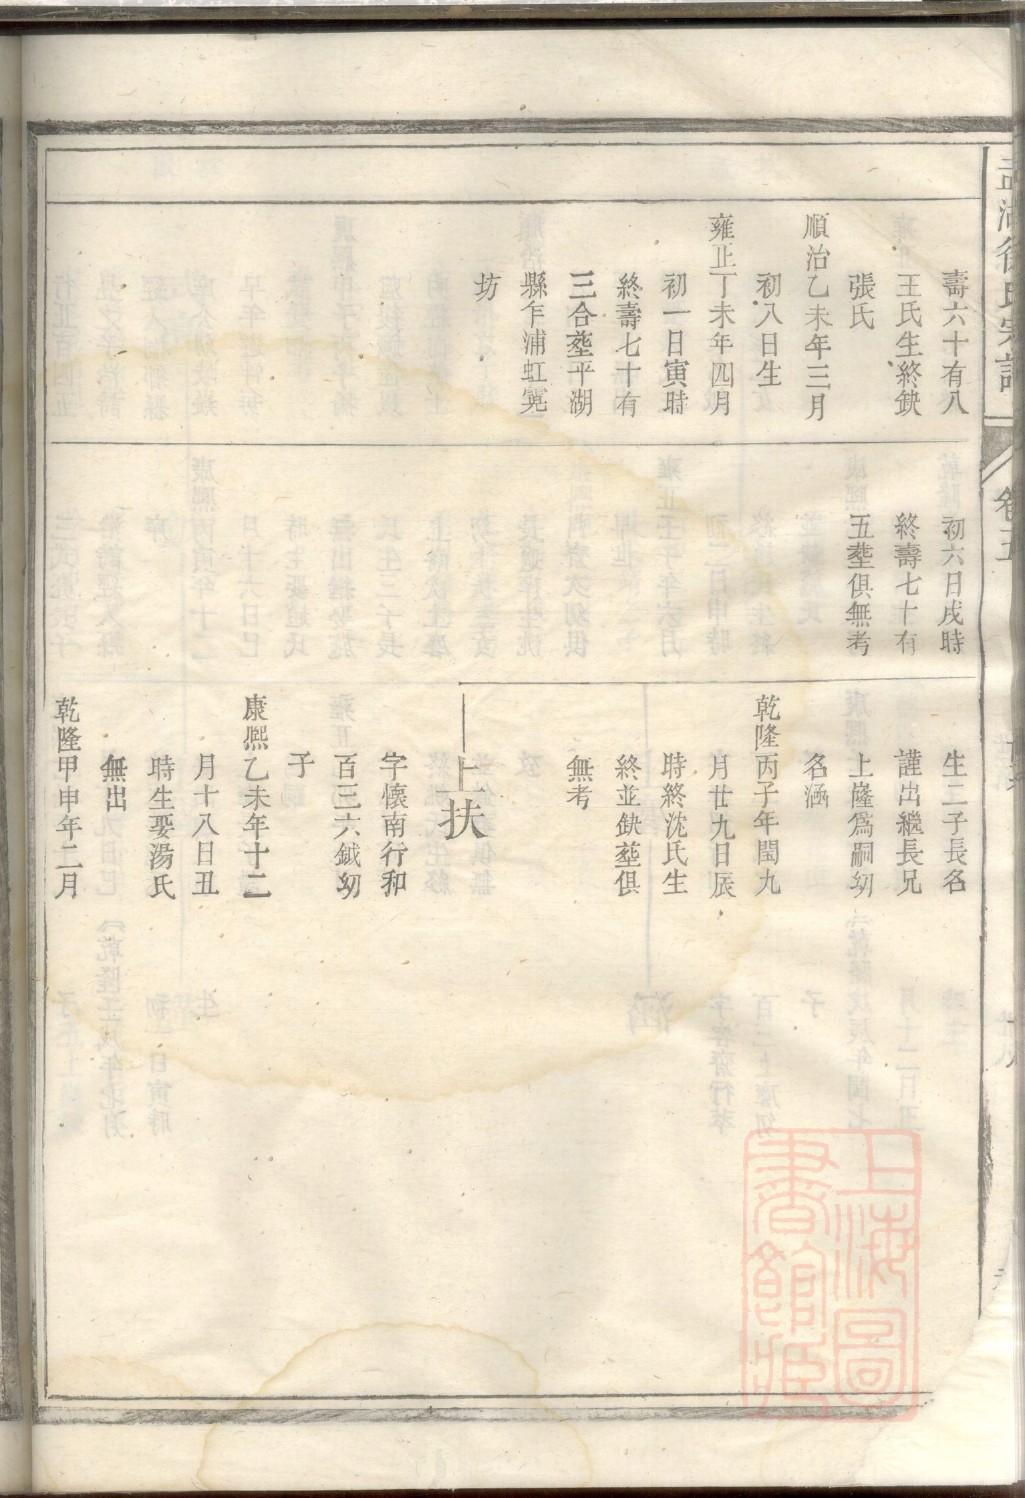 徐氏宗譜
卷五
壽六十有八
王氏生終缺
張氏
順治乙未年三月
初八日生
雍正丁未年四月
初一日寅時
終壽七十有
三合塟平湖
縣乍浦虹霓
坊
初六日戌時
終壽七十有
五塟俱無考
生二子長名
謹出繼長兄
上隆爲嗣幼
名涵
乾隆丙子年閏九
月廿九日辰
時終沈氏生
終並缺塟俱
無考
上扶
字懷南行和
百三六鉞幼
子
康熈乙未年十二
月十八日丑
時生娶湯氏
無出
乾隆甲申年二月
上海圖
書館藏